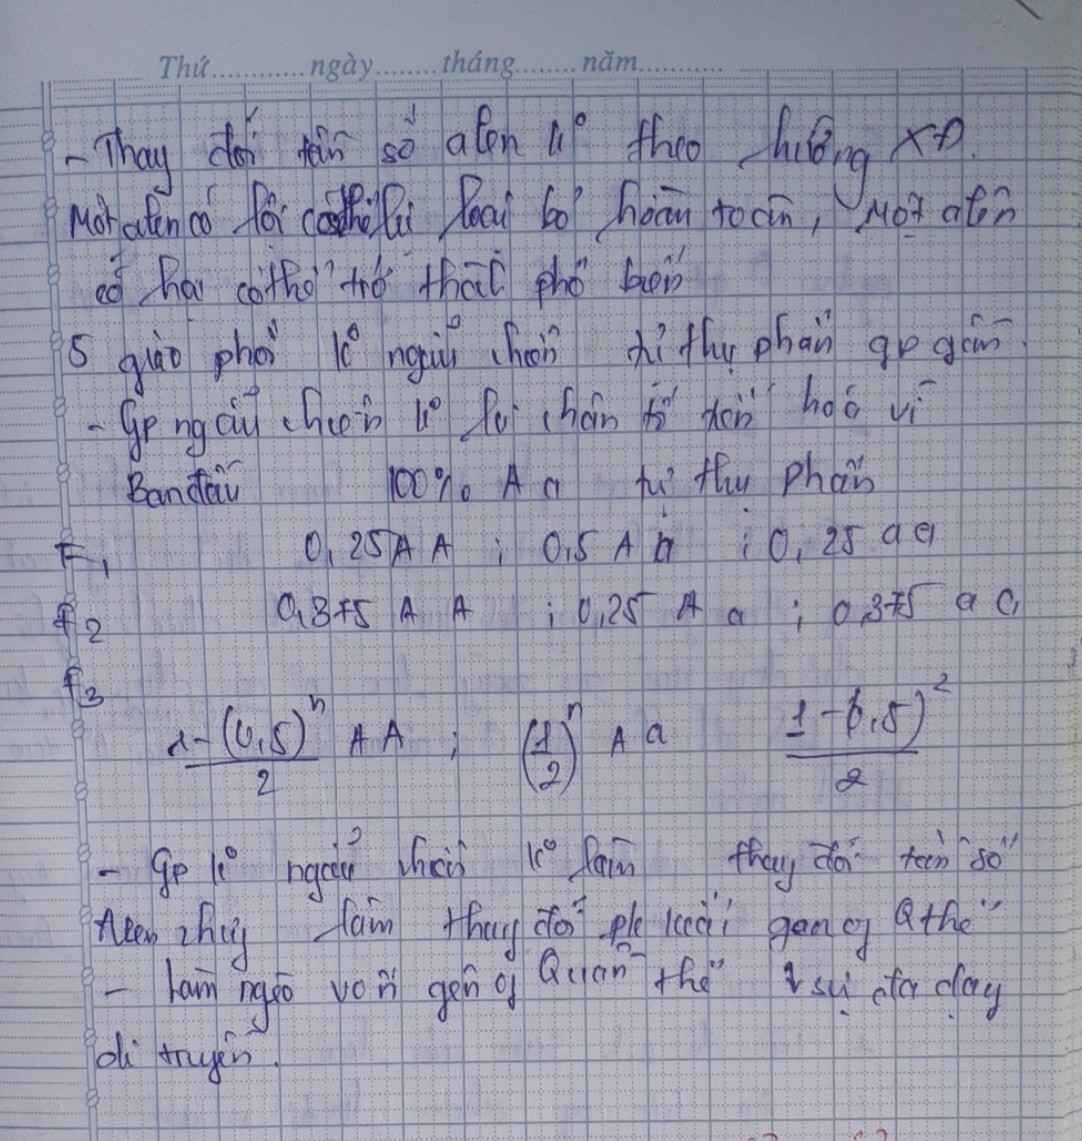 Thứ............ngày........tháng........năm............
- Thay đổi tần số alen k° theo hướng XĐ.
Một alen có lợi có thể bị loại bỏ hoàn toàn, Một alen
có hại có thể trở thàh phổ biến
5 giao phối k° ngẫu nhiên tự thụ phấn gp gần
- Gp ngẫu nhiên k° là nhân tố tiến hoá vì
Ban đầu 100% Aa tự thụ phấn
F1 0,25AA ; 0,5 Aa ; 0,25 aa
F2 0,375 AA ; 0,25 Aa ; 0,375 aa
F3
1-(0,5)^n/2 AA ; (1/2)^n Aa 1-0,5)^2/2
- Gp k° ngẫu nhiên k° làm thay đổi tần số
Alen làm thay đổi gen of Q thể
- Làm nghèo vốn gen of Quần thể sự đa dạng
di truyền.